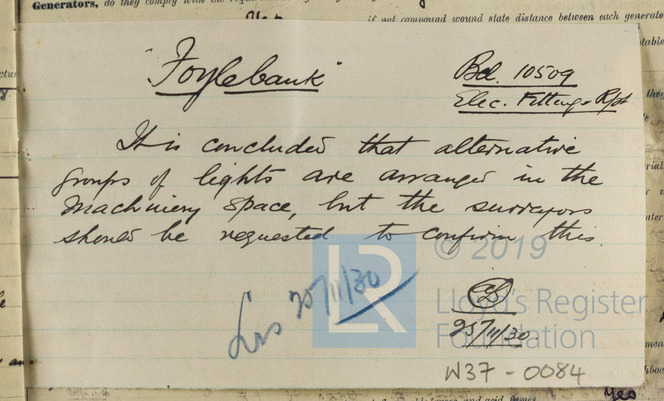 Generators,
if not compound wound state distance between each generato
"Foylebank"
Bel. 10509
Elec. Fittings Rpt
It is concluded that alternative
groups of lights are arranged in the
machinery space, but the surveyors
should be requested to confirm this.
© 2019
LR
Lloyd's Register
Foundation
25/11/30
25/11/30.
W37-0084
Yes